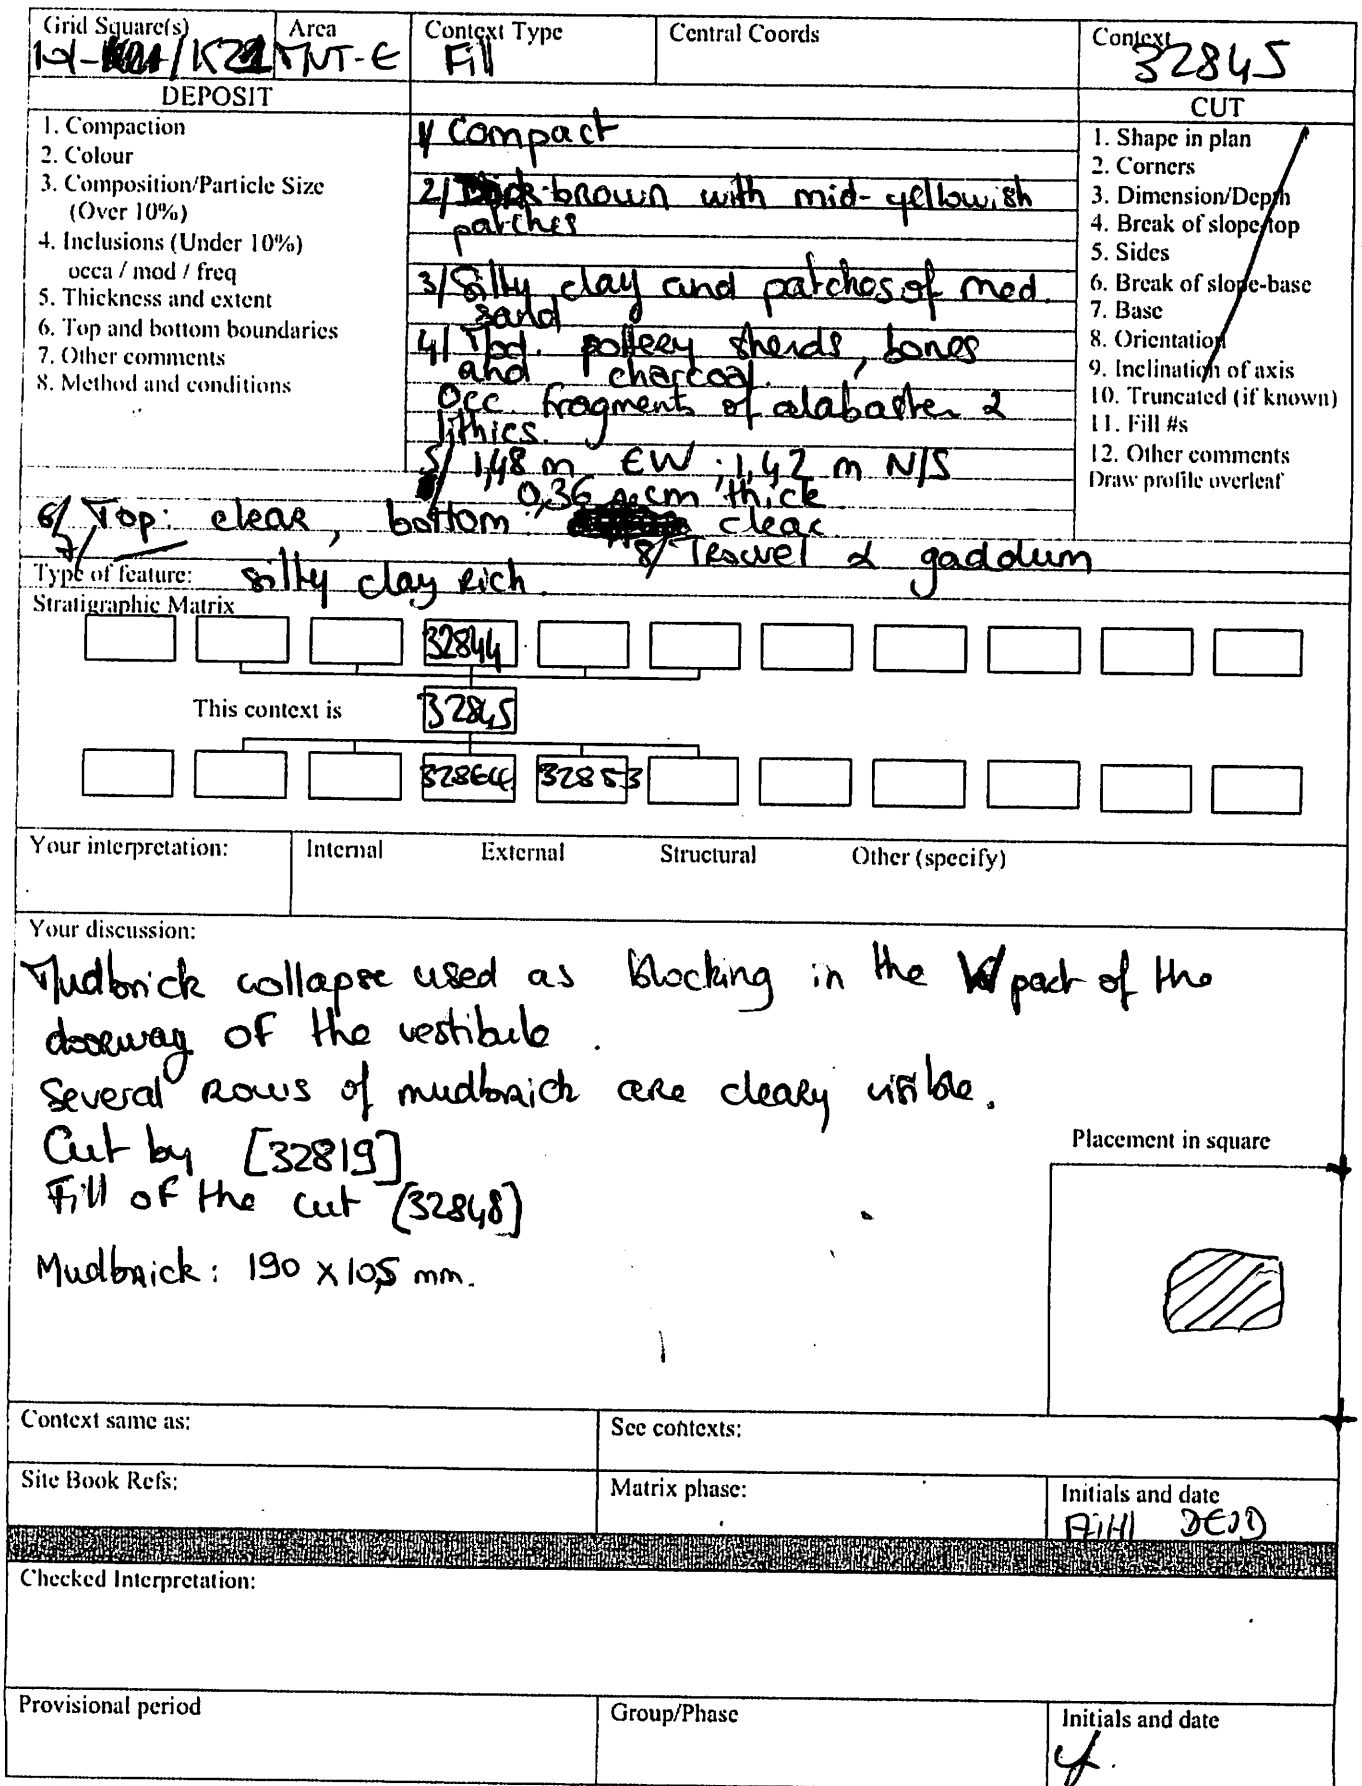 Grid Square(s) Area Context Type Central Coords Context
/K22 MNT-E Fill 32845
DEPOSIT CUT
1. Compaction
2. Colour
3. Composition/Particle Size
(Over 10%)
4. Inclusions (Under 10%)
occa / mod / freq
5. Thickness and extent
6. Top and bottom boundaries
7. Other comments
8. Method and conditions
1/ Compact
2/ brown with mid-yellowish
patches
3/ Silty clay and patches of med.
sand
4/ Mod. pottery sherds, bones
and charcoal.
Occ. fragments of alabaster &
lithics.
5/ 1,48 m EW ; 1,42 m N/S
0,36 cm thick
6/ Top: clear, bottom: clear
7/ 8/ Trowel & gaddum
1. Shape in plan
2. Corners
3. Dimension/Depth
4. Break of slope-top
5. Sides
6. Break of slope-base
7. Base
8. Orientation
9. Inclination of axis
10. Truncated (if known)
11. Fill #s
12. Other comments
Draw profile overleaf
Type of feature: silty clay rich.
Stratigraphic Matrix
32844
This context is 32845
32864 32853
Your interpretation: Internal External Structural Other (specify)
Your discussion:
Mudbrick collapse used as blocking in the W part of the
doorway of the vestibule.
Several rows of mudbrick are cleary visible.
Cut by [32819]
Fill of the cut [32848]
Mudbrick: 190 x 105 mm.
Placement in square
Context same as: See contexts:
Site Book Refs: Matrix phase: Initials and date
Checked Interpretation:
Provisional period Group/Phase Initials and date